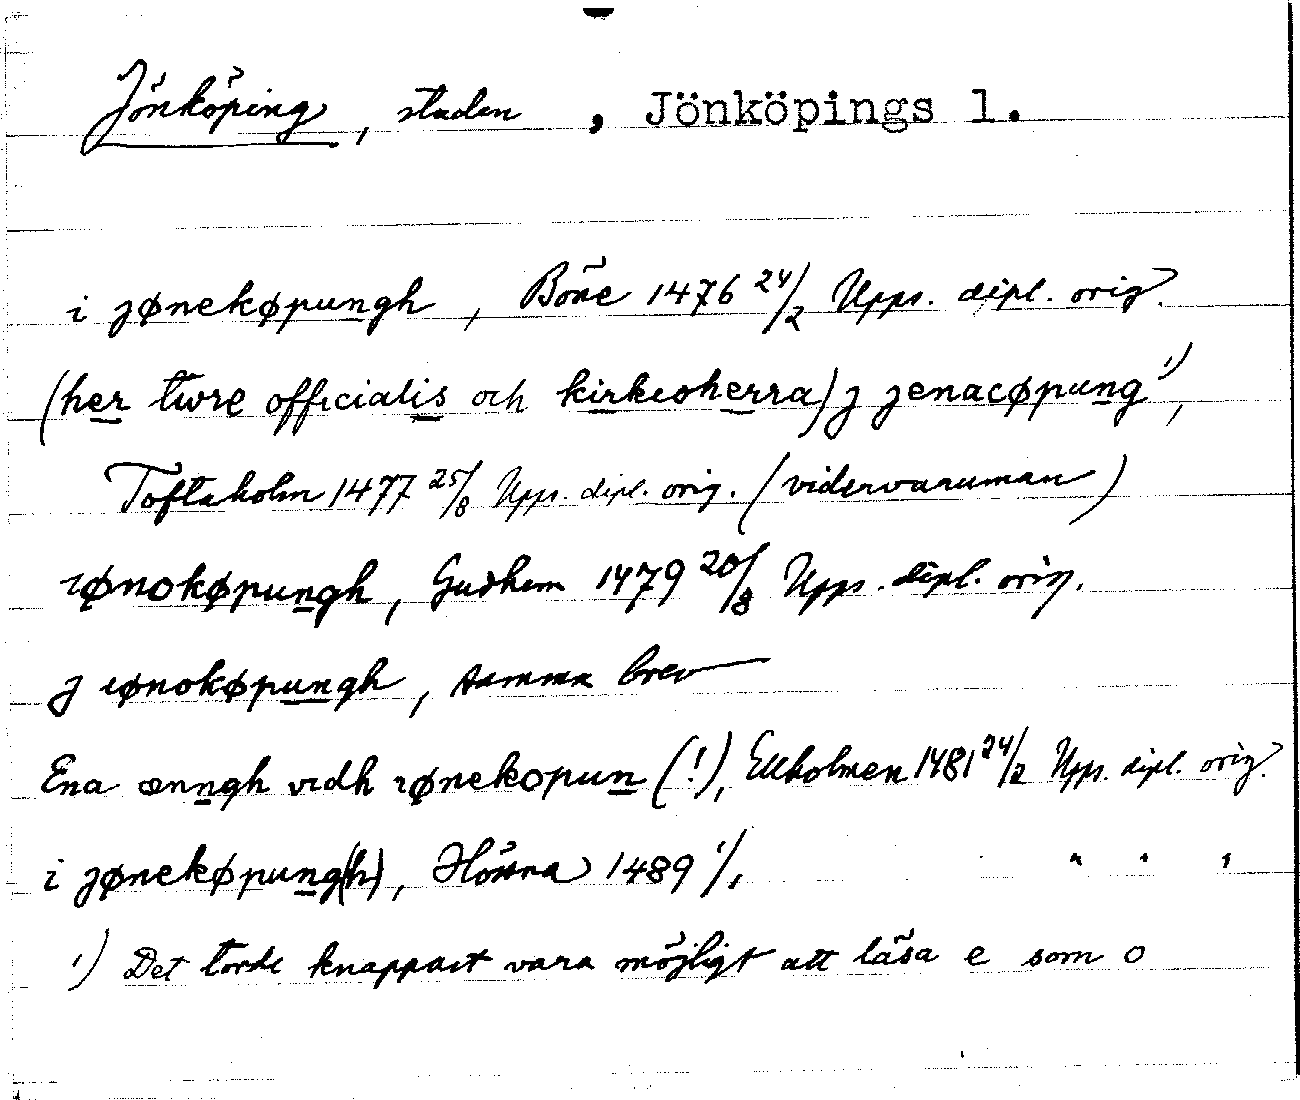 Jönköping, staden, Jönköpings l.
i jøneköpungh, Böne 1476 24/2 Upps. dipl. orig.
(her twre officialis och kirkeoherra) j jenacøpung ¹),
Toftaholm 1477 25/8 Upps. dipl. orig. (vidervaruman)
ıønokøpungh, Gudhem 1479 20/8 Upps. dipl. orig.
j ıønokøpungh, samma brev
Ena ænngh vidh ıønekopun (!), Ekholmen 1481 24/2 Upps. dipl. orig.
i jønekøpung(h), Hössna 1489 1/1 " " "
¹) Det torde knappast vara möjligt att läsa e som o